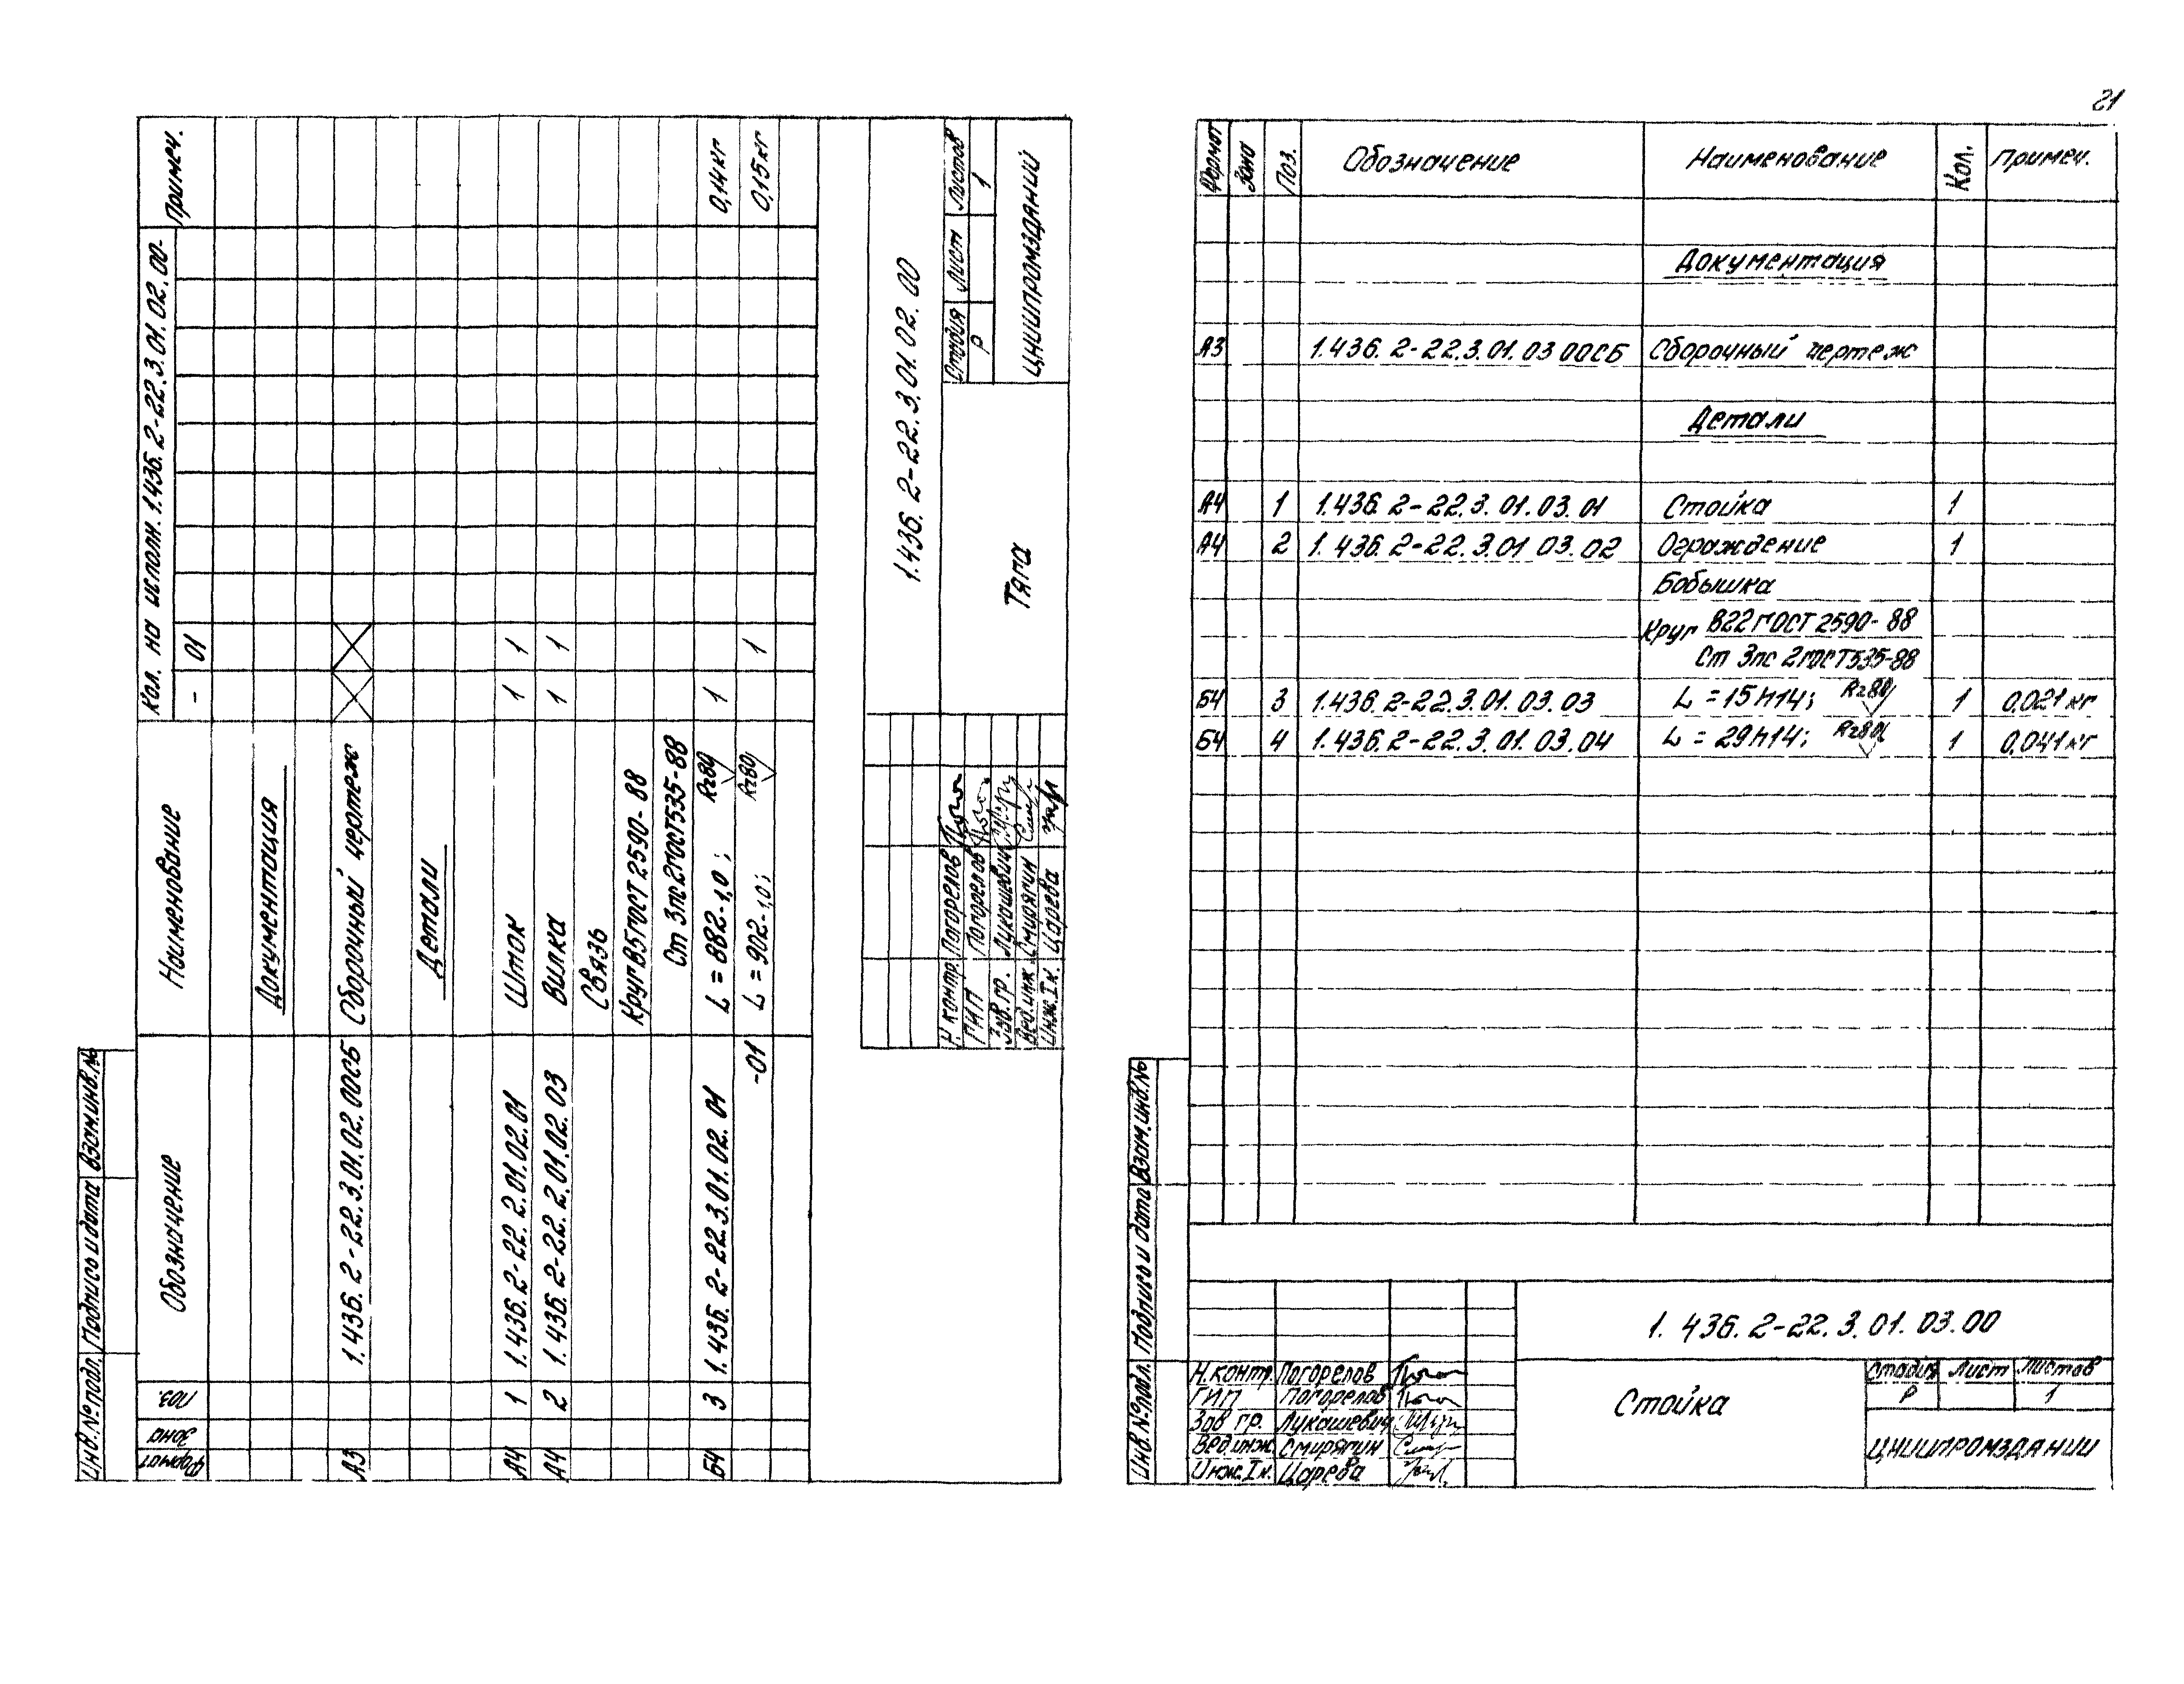 21
Формат Зона Поз. Обозначение Наименование Кол. на исполн. 1.436.2-22.3.01.02.00- Примеч.
- 01
Документация
А3 1.436.2-22.3.01.02.00СБ Сборочный чертеж
Детали
А4 1 1.436.2-22.2.01.02.01 Шток 1 1
А4 2 1.436.2-22.2.01.02.03 Вилка 1 1
Связь
Круг В5 ГОСТ 2590-88
Ст 3пс 2 ГОСТ 535-88
Б4 3 1.436.2-22.3.01.02.01 L = 882-1,0; Rz80 1 0,14кг
-01 L = 902-1,0; Rz80 1 0,15кг
1.436.2-22.3.01.02.00
Н. контр. Погорелов
ГИП Погорелов
Зав. гр. Лукашевич
Вед. инж. Смирягин
Инж. I к. Царева
Тяга
Стадия Лист Листов
Р 1
ЦНИИПРОМЗДАНИЙ
Инв. № подл. Подпись и дата Взам. инв. №
Формат Зона Поз. Обозначение Наименование Кол. Примеч.
Документация
А3 1.436.2-22.3.01.03 00СБ Сборочный чертеж
Детали
А4 1 1.436.2-22.3.01.03.01 Стойка 1
А4 2 1.436.2-22.3.01 03.02 Ограждение 1
Бобышка
Круг В22 ГОСТ 2590-88
Ст 3пс 2 ГОСТ 535-88
Б4 3 1.436.2-22.3.01.03.03 L = 15h14; Rz80 1 0.021кг
Б4 4 1.436.2-22.3.01.03.04 L = 29h14; Rz80 1 0.041кг
1.436.2-22.3.01.03.00
Н. контр. Погорелов
ГИП Погорелов
Зав гр. Лукашевич
Вед. инж. Смирягин
Инж. I к. Царева
Стойка
Стадия Лист Листов
Р 1
ЦНИИПРОМЗДАНИИ
Инв. № подл. Подпись и дата Взам. инв. №